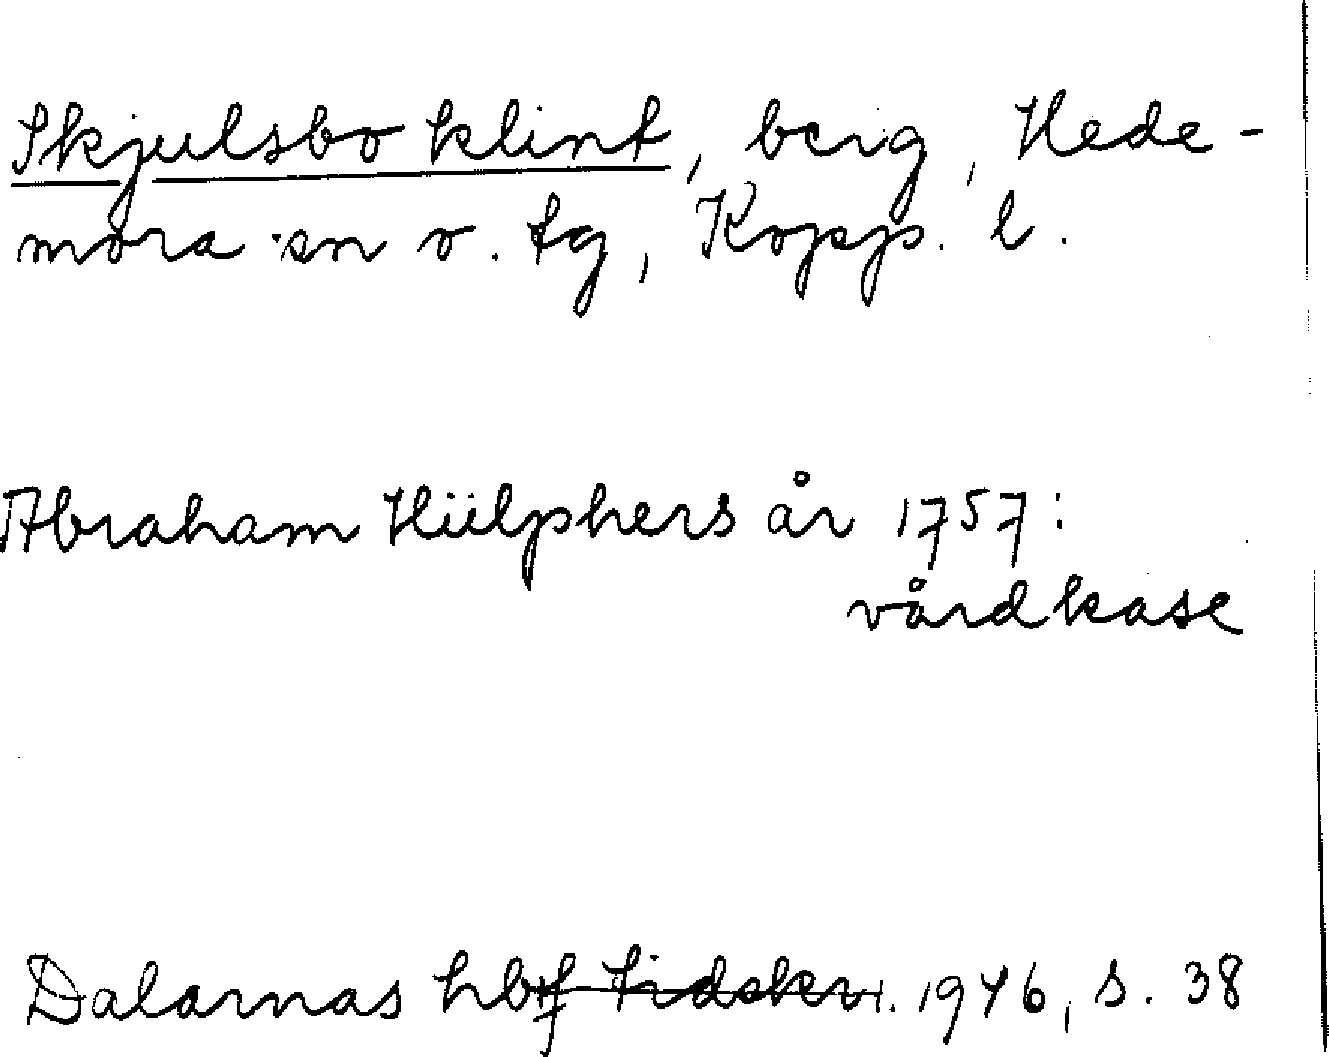 Skjulsbo klint, berg, Hede-
mora sn o. tg, Kopp. l.
Abraham Hülphers år 1757:
vårdkase
Dalarnas hbf tidskr. 1946, s. 38